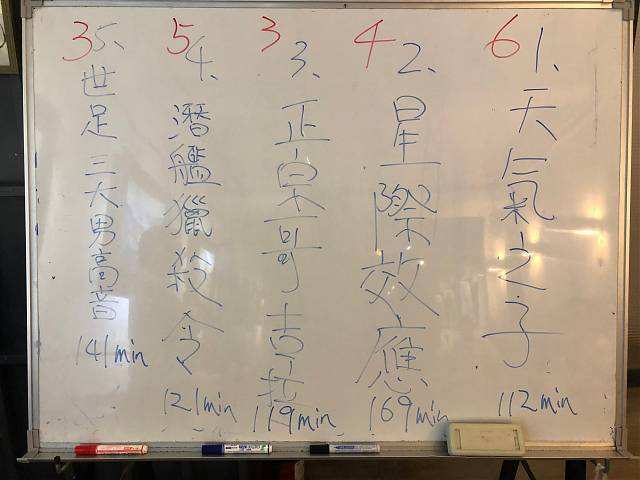 6
1、天氣之子
112min
4
2、星際效應
169min
3
3、正宗哥吉拉
119min
5
4、潛艦獵殺令
121min
3
5、世足三大男高音
141min